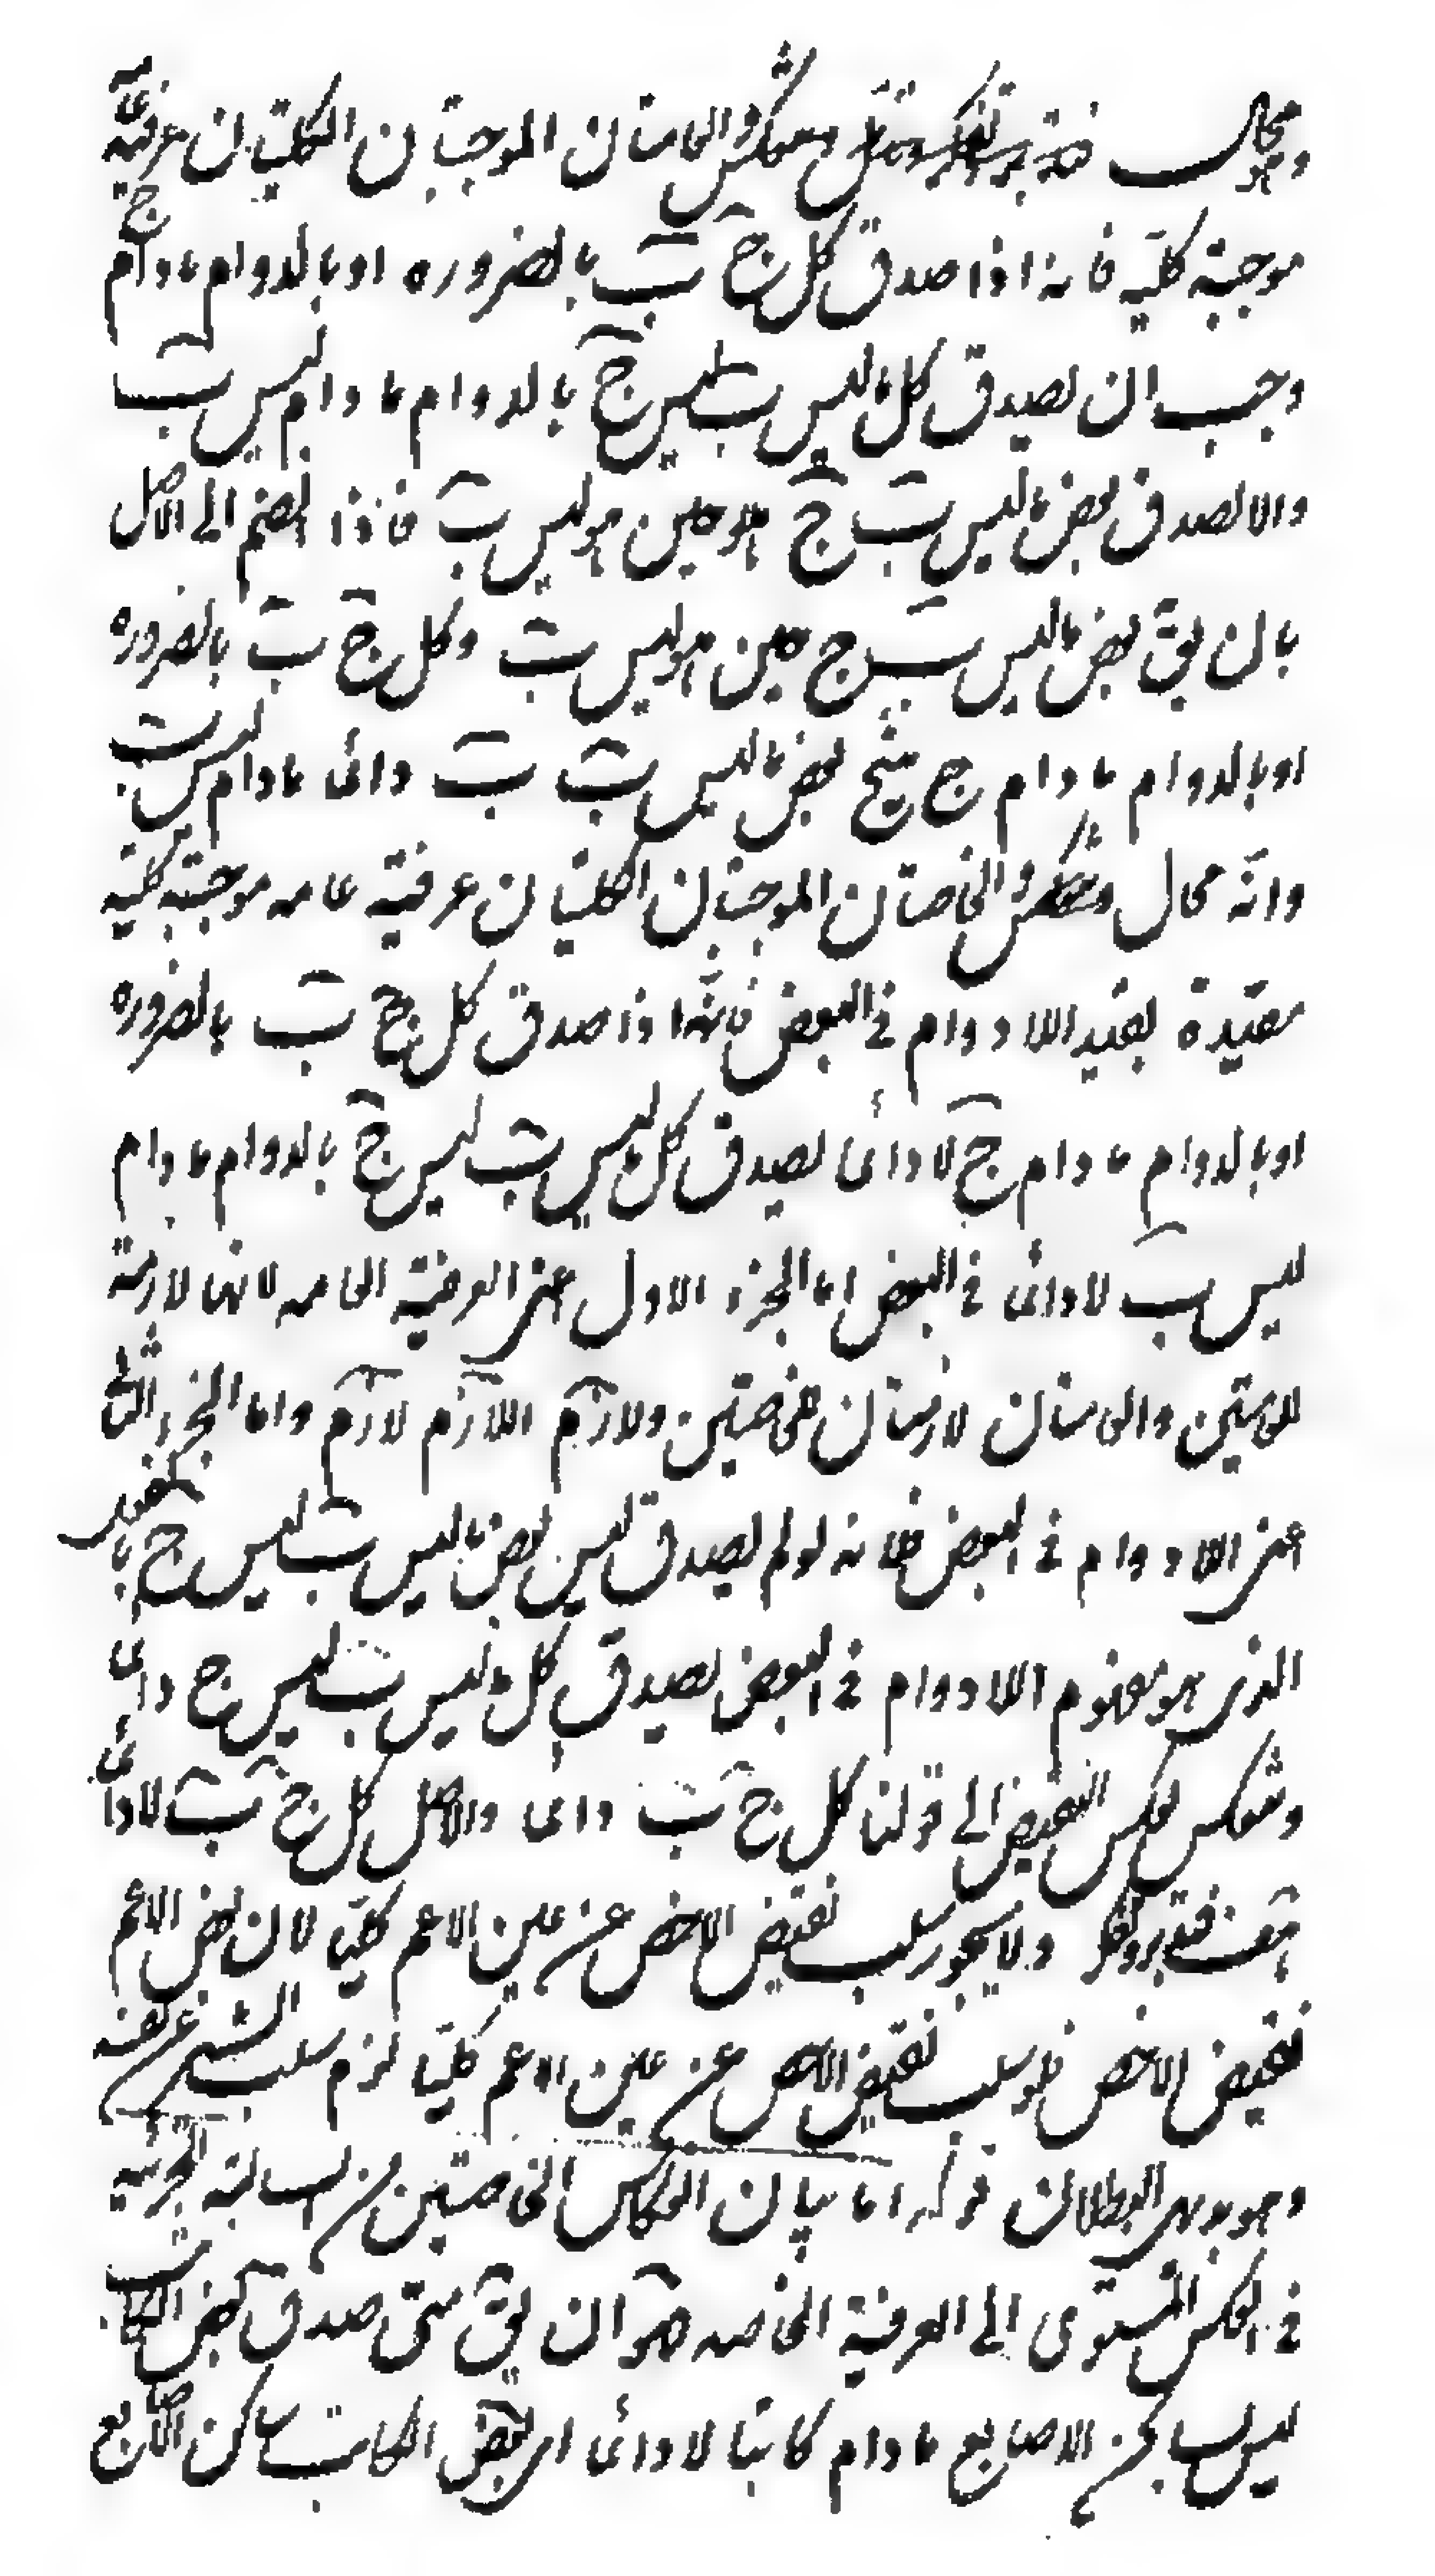 وهو محال فتدبر وتفكر وتنعكس والعامتان الموجبتان الكليتان عرفية عامة
موجبة كلية فانه اذا صدق كل ج ب بالضروره او بالدوام مادام ج
وجب ان يصدق كل ما ليس ب ليس ج بالدوام مادام ليس ب
والا لصدق بعض ما ليس ب ج هو حين هو ليس ب فاذا انضم الى الاصل
بان يق بعض ما ليس ب ج حين هو ليس ب وكل ج ب بالضروره
او بالدوام مادام ج ينتج بعض ما ليس ب ب دائما مادام ليس ب
وانه محال وتنعكس والخاصتان الموجبتان الكليتان عرفية عامه موجبة كلية
مقيدة بقيد اللادوام في البعض فانه اذا صدق كل ج ب بالضروره
او بالدوام مادام ج لا دائما يصدق كل ما ليس ب ليس ج بالدوام مادام
ليس ب لا دائما في البعض اما الجزء الاول اعني العرفية العامه لانها لازمة
للعامتين والعامتان لازمتان للخاصتين ولازم اللازم لازم واما الجزء الثاني
اعني اللادوام في البعض فلانه لو لم يصدق ليس بعض ما ليس ب ليس ج بالفعل
الذي هو مفهوم اللادوام في البعض لصدق كل ما ليس ب ليس ج دائما
وتنعكس بعكس النقيض الى قولنا كل ج ب دائما والاصل كل ج ب لا دائما
هف فتدبر وتفكر ولا يجوز سلب نقيض الاخص عن عين الاعم كليا لان بعض الاعم
نقيض الاخص فلو سلب نقيض الاخص عن عين الاعم كليا لزم سلب الشيء عن نفسه
وهو بديهي البطلان قوله اما بيان انعكاس الخاصتين من السالبة الجزئية
في العكس المستوي الى العرفية الخاصه فهو ان يق متى صدق بعض الكاتب
ليس بساكن الاصابع مادام كاتبا لا دائما اي بعض الكاتب ساكن الاصابع